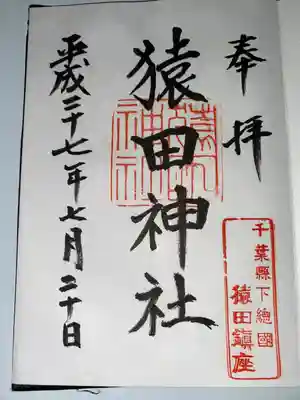 奉拝
千葉縣下總國
猿田鎮座
猿田神社
平成二十七年七月二十日